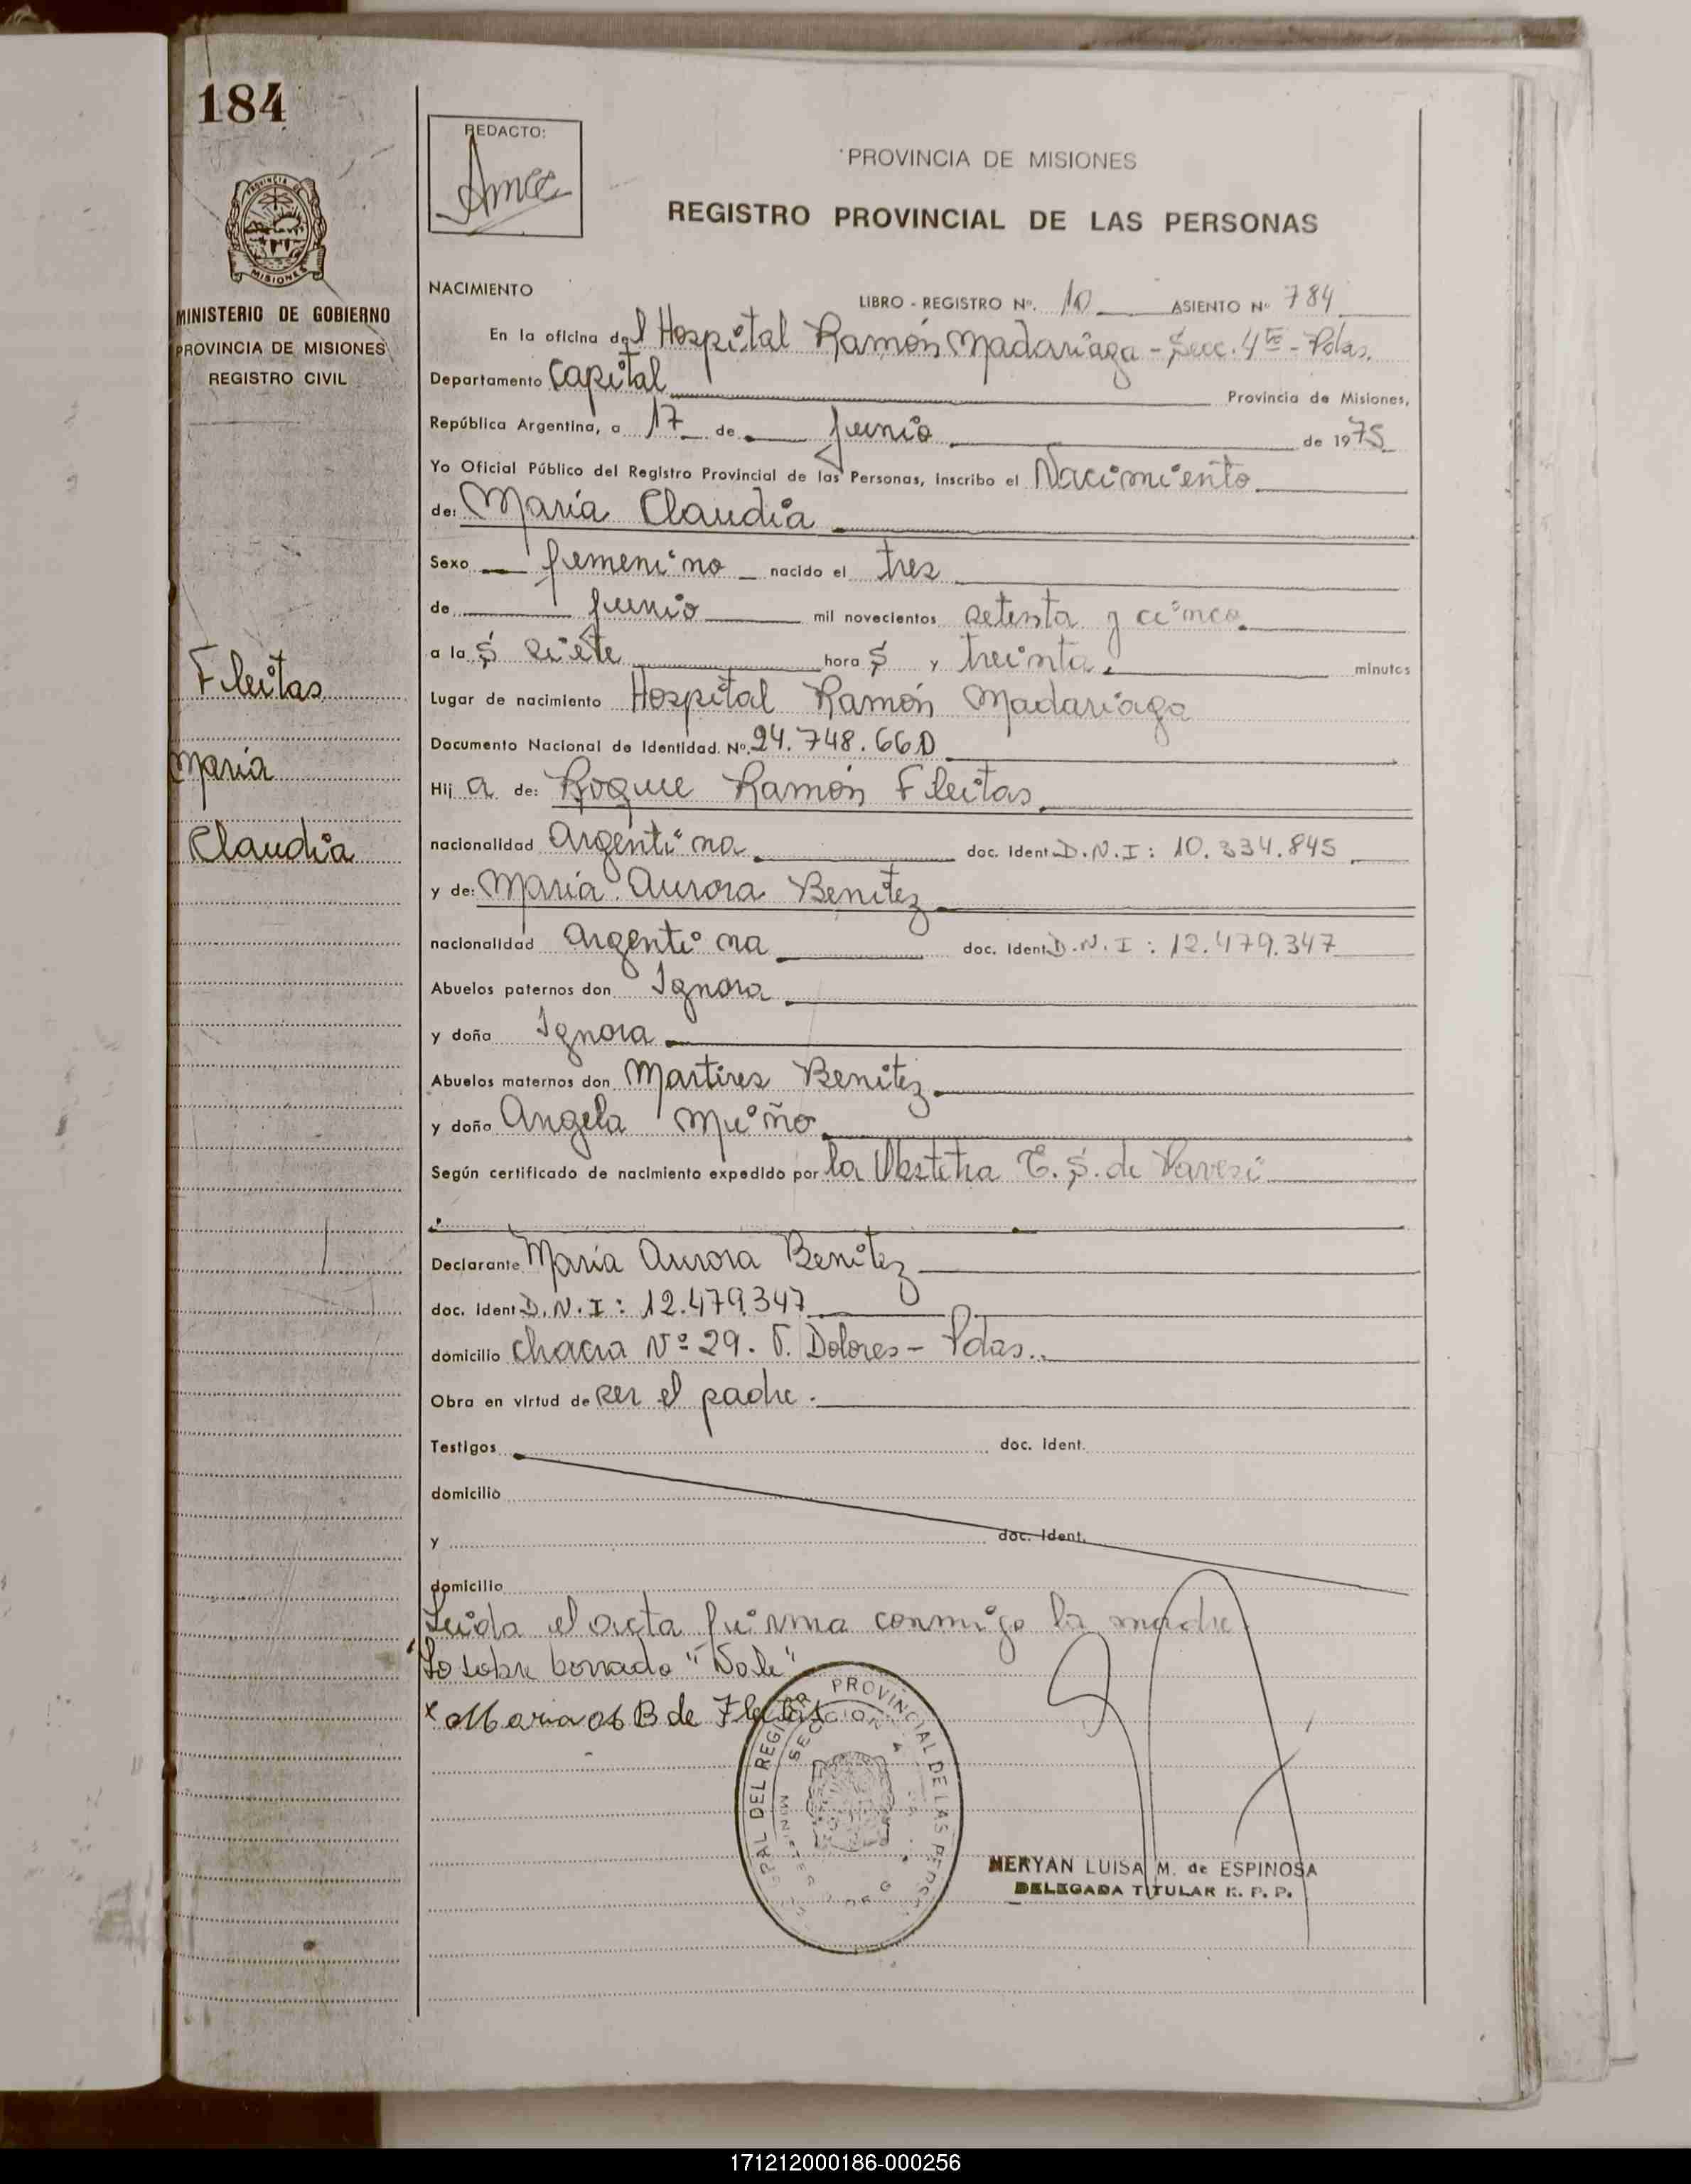 184
REDACTO:
PROVINCIA DE MISIONES
REGISTRO PROVINCIAL DE LAS PERSONAS
PROVINCIA DE
MISIONES
MINISTERIO DE GOBIERNO
PROVINCIA DE MISIONES
REGISTRO CIVIL
NACIMIENTO
LIBRO - REGISTRO Nº. 10 ASIENTO Nº 784
En la oficina del Hospital Ramón Madariaga - Secc. 4ta - Pdas.
Departamento Capital Provincia de Misiones,
República Argentina, a 17 de Junio de 1975
Yo Oficial Público del Registro Provincial de las Personas, inscribo el Nacimiento
de: María Claudia
Sexo femenino nacido el tres
de junio mil novecientos setenta y cinco.
a las siete horas y treinta. minutos
Fleitas
Lugar de nacimiento Hospital Ramón Madariaga
Documento Nacional de Identidad. Nº. 24.748.660
María
Hija de: Roque Ramón Fleitas.
Claudia
nacionalidad Argentina doc. Ident. D.N.I: 10.334.845
y de: María Aurora Benitez
nacionalidad Argentina doc. Ident. D.N.I: 12.479.347
Abuelos paternos don Ignora
y doña Ignora
Abuelos maternos don Martires Benitez
y doña Angela Miño
Según certificado de nacimiento expedido por la Obstetra E. S. de Pavesi
Declarante María Aurora Benitez
doc. Ident. D.N.I: 12.479.347
domicilio Chacra Nº 29. V. Dolores - Pdas..
Obra en virtud de ser el padre.
Testigos doc. Ident.
domicilio
y doc. Ident.
domicilio
Leida el acta firma conmigo la madre
Lo sobre borrado "Vale"
x Maria A B de Fleitas
PROVINCIAL DE LAS
SECCION 4
MERYAN LUISA M. de ESPINOSA
DELEGADA TITULAR R. P. P.
171212000186-000256